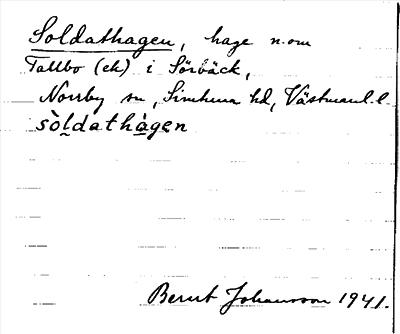 Soldathagen, hage n.om
Tallbo (ek) i Sörbäck,
Norrby sn, Simtuna hd, Västmanl. l.
sòldathàgen
Bernt Johansson 1941.